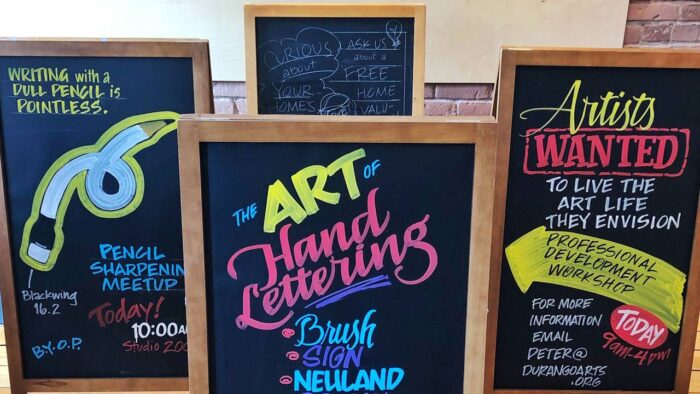 WRITING with a
DULL PENCIL is
POINTLESS.
PENCIL
SHARPENIN
MEETUP
Blackwing
16.2
Today!
10:00A
Studio 20
B.Y.O.P.
CURIOUS
about
YOUR
HOME'S
ASK US
about a
FREE
HOME
VALU-
THE ART OF
Hand
Lettering
Brush
SIGN
NEULAND
Artists
WANTED
TO LIVE THE
ART LIFE
THEY ENVISION
PROFESSIONAL
DEVELOPMENT
WORKSHOP
FOR MORE
INFORMATION
EMAIL
PETER@
DURANGOARTS
.ORG
TODAY
9am-4pm